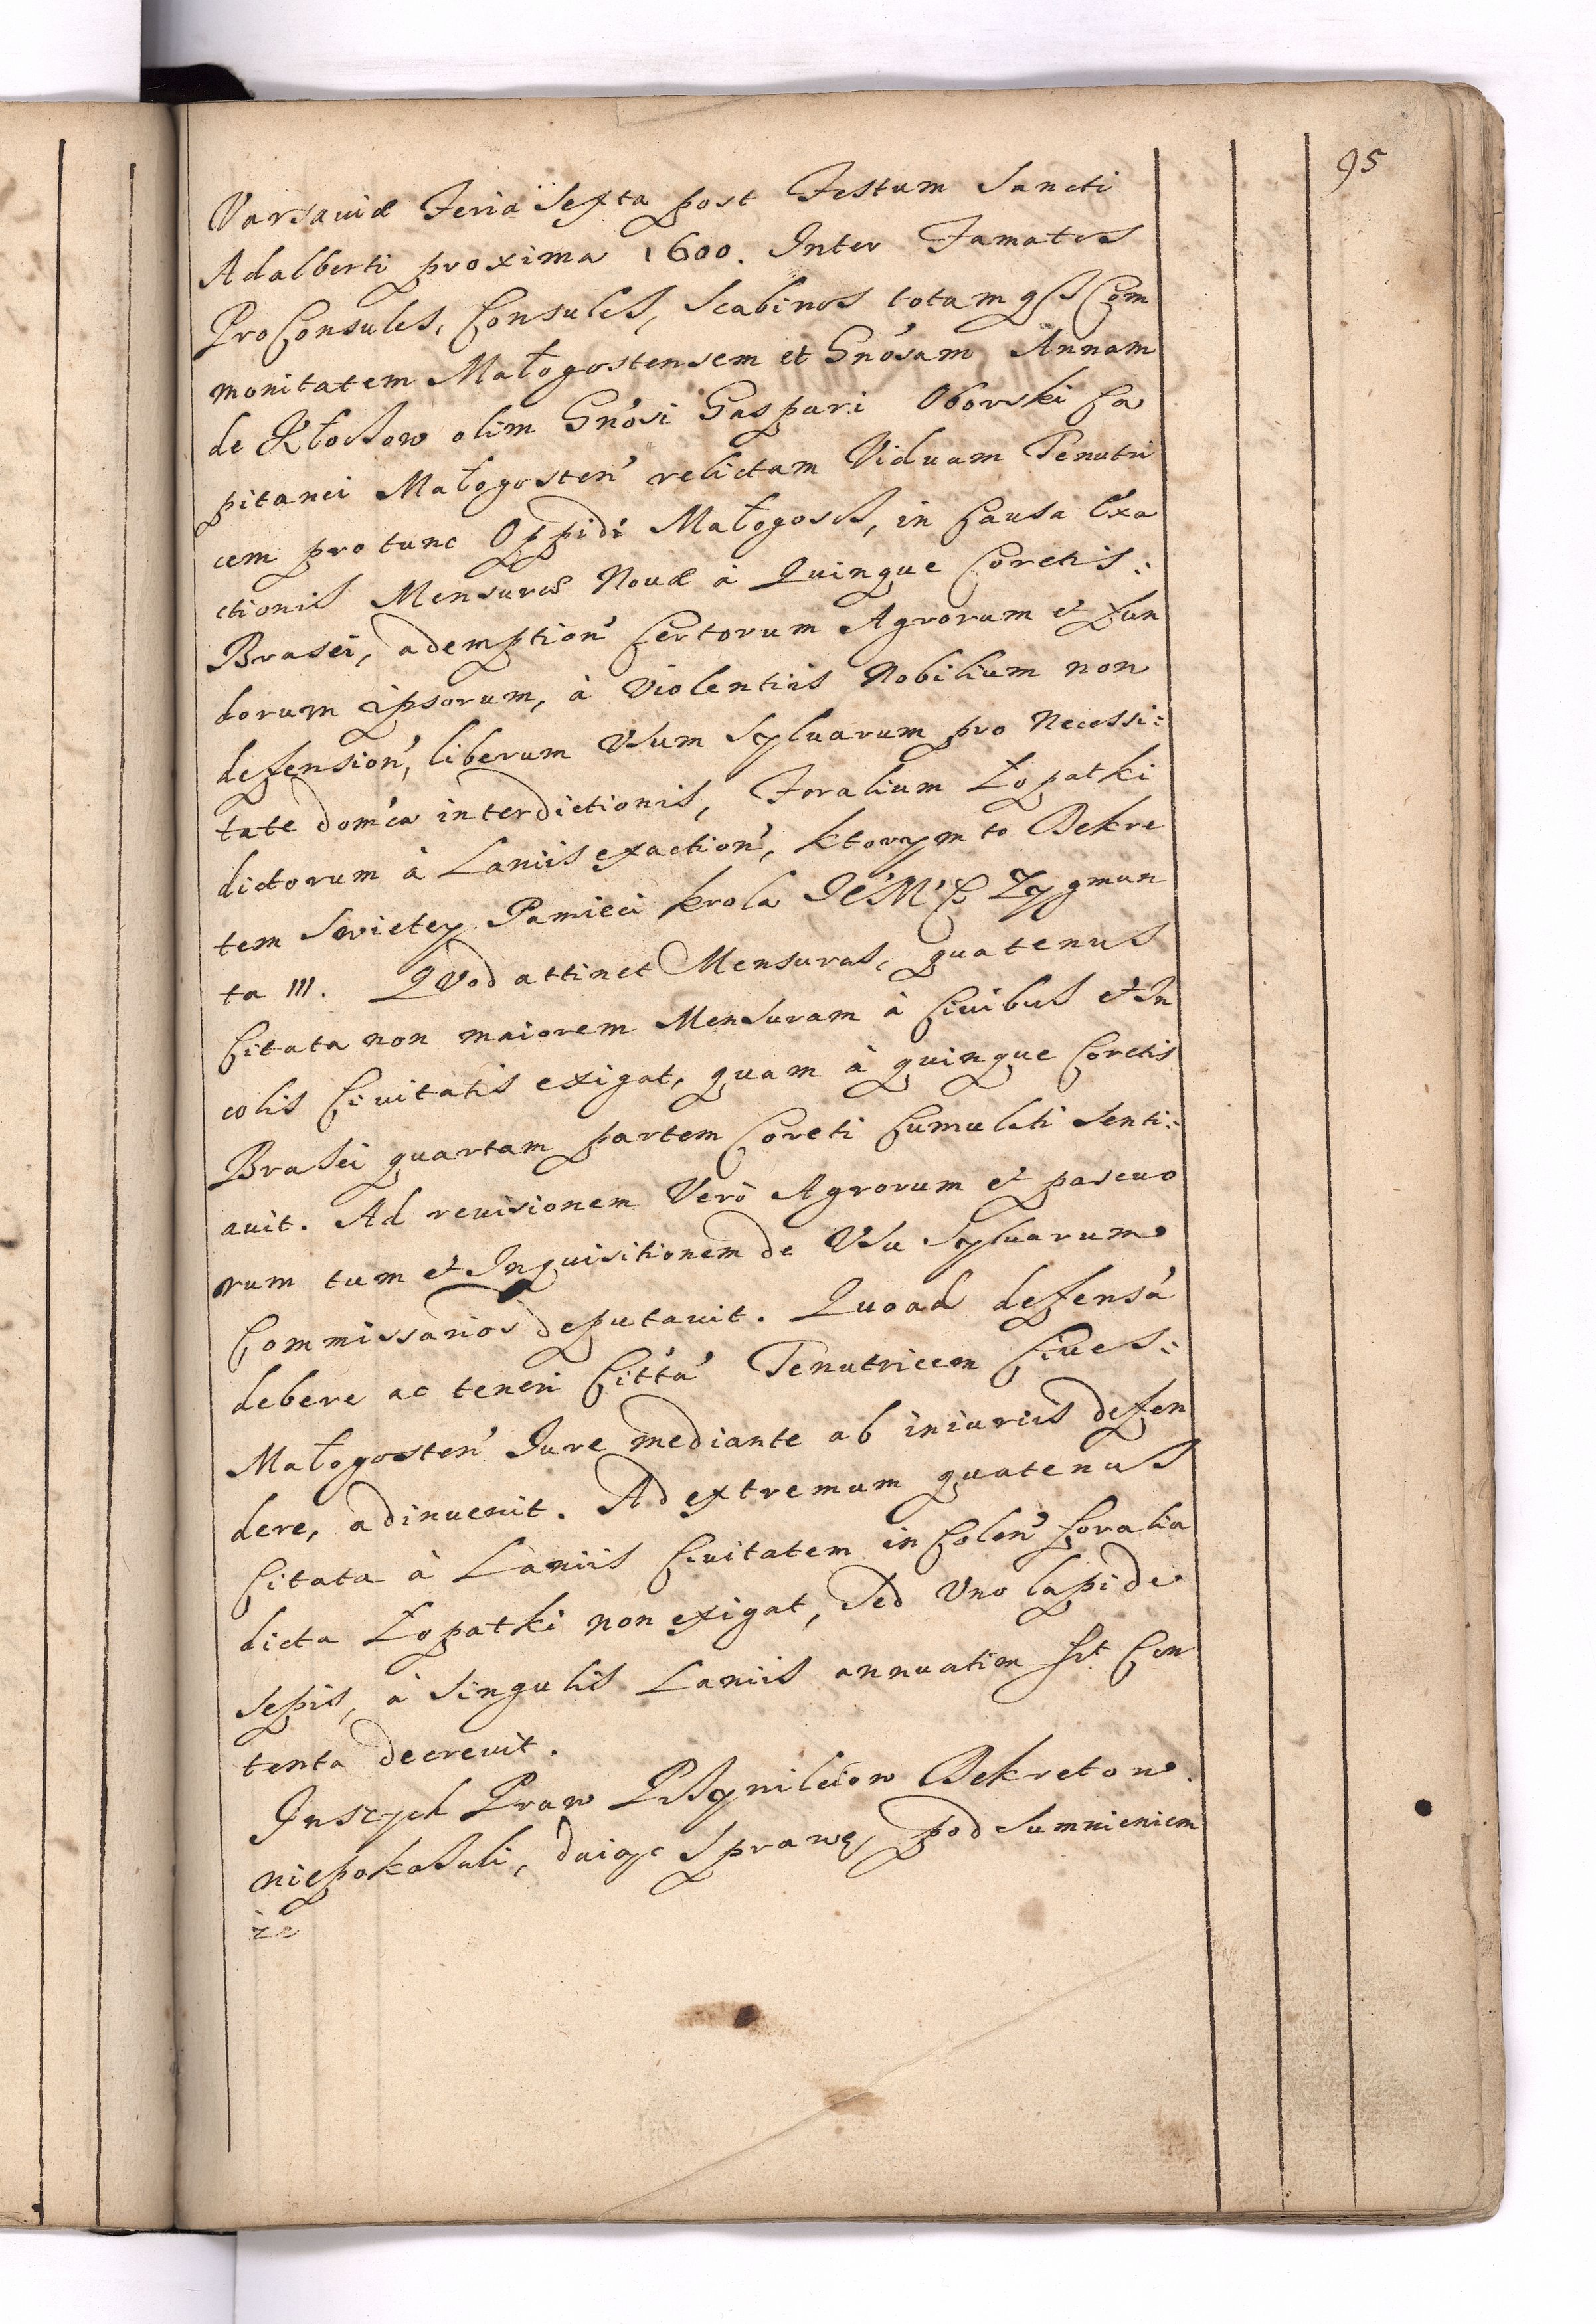 95
Varsauiæ Feria Sexta post Festum Sancti
Adalberti proxima 1600. Inter Famatos
ProConsules, Consules, Scabinos totamqɜ Com
monitatem Małogostensem et Gn'osam Annam
de Kłoczow olim Gn'osi Gaspari Oborski Ca
pitanei Małogosten' relictam Viduam Tenutri
cem pro tunc Oppidi Małogoscz, in Causa Exa
ctionis Mensuræ Nouæ à Quinque Coretis:
Brasei, ademption' Certorum Agrorum et Fun
dorum ipsorum, à Violentiis Nobilium non
defension', liberum Vsum Syluarum pro Necessi:
tate dom'ca interdictionis, Foralium Łopatki
dictorum à Laniis exaction', ktorym to Dekre
tem Swietey Pamieci Krola JE'M'C Zygmun
ta III. QVod attinet Mensuras, quatenus
Citata non maiorem Mensuram à Ciuibus et In
colis Ciuitatis exigat, quam à quinque Coretis
Brasei quartam partem Coreti Cumulati Senti:
auit. Ad reuisionem Verò Agrorum et pascuo
rum tum et Inquisitionem de Vsu Syluarum
Commissarios deputauit. Quoad defensa'
debere ac teneri Citta' Tenutricem Ciues:
Małogosten' Jure mediante ab iniuriis defen
dere, adinuenit. Ad extremum quatenus
Citata à Laniis Ciuitatem in Colen' Foralia
dicta Łopatki non exigat, Sed Vno lapide
sepis, à Singulis Laniis annuatim sit Con
tenta decreuit.
Inszych Praw Przywileiow Dekretow
niepokazali, daiąc Sprawę, pod Sumnieniem
iz